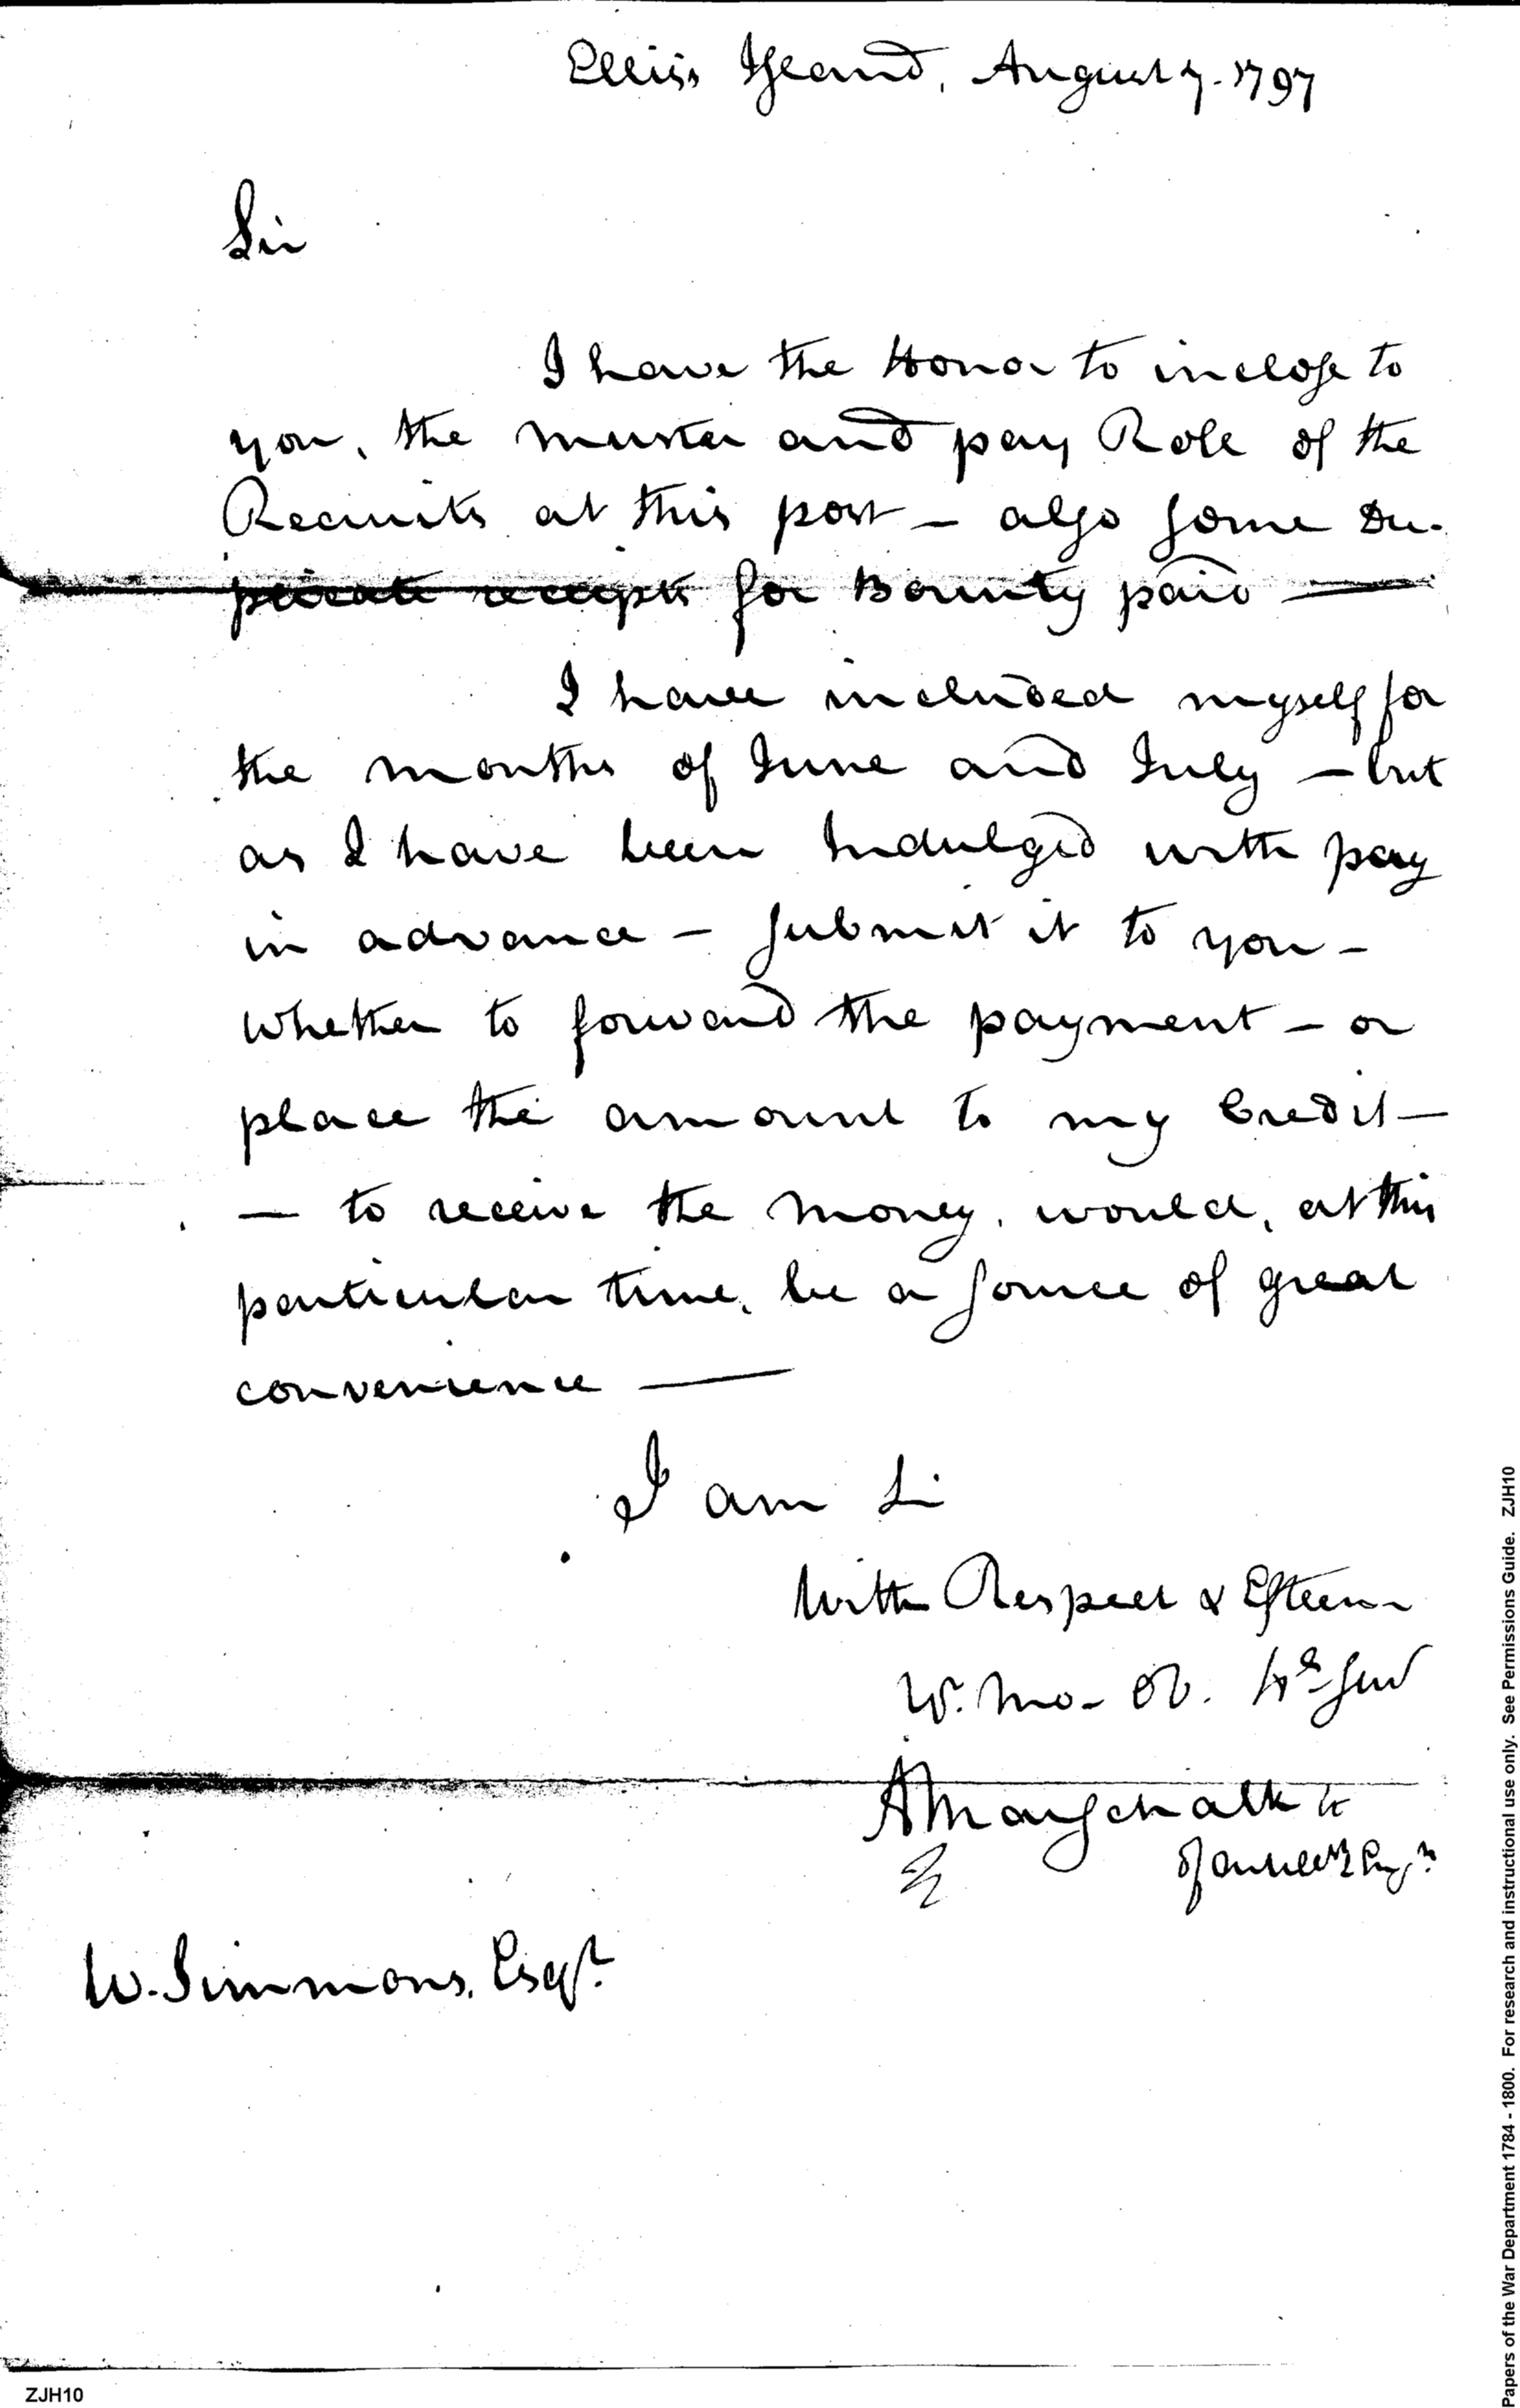 Elliss Island, August 7. 1797
Sir
I have the Honor to inclose to
you, the muster and pay Role of the
Recruits at this post – also some Du-
plicate receipts for Bounty paid —
I have included myself for
the months of June and July – but
as I have been Indulged with pay
in advance – submit it to you –
whether to forward the payment – or
place the amount to my Credit –
— to receive the money, would, at this
particular time, be a source of great
convenience —
I am Sir
With Respect & Esteem
Yr. Mo- Ob. Hle Serv
AMarschalk Lt
of Artillery & Engrs
W. Simmons, Esqr.
Papers of the War Department 1784 - 1800. For research and instructional use only. See Permissions Guide. ZJH10
ZJH10